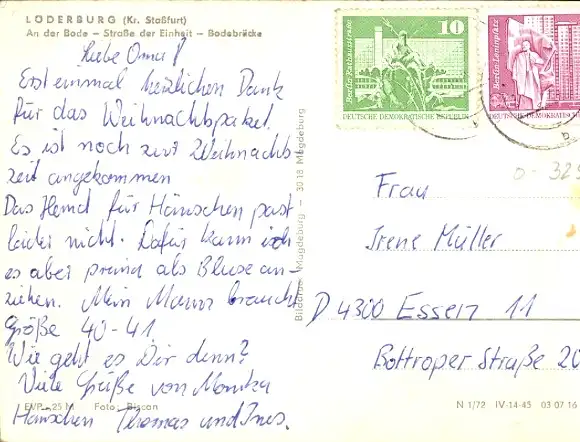 LÖDERBURG (Kr. Staßfurt)
An der Bode – Straße der Einheit – Bodebrücke
Liebe Oma!
Erst einmal herzlichen Dank
für das Weihnachtspaket.
Es ist noch zur Weihnachts
zeit angekommen
Das Hemd für Hänschen past
leider nicht. Dafür kann ich
es aber prima als Bluse an-
ziehen. Mein Mann braucht
Größe 40-41.
Wie geht es Dir denn?
Viele Grüße von Monika
Hänschen Thomas und Ines.
EVP –25 M Foto: Biscan
Bild und Magdeburg – 3018 Magdeburg
Berlin-Rathausstraße
10
DEUTSCHE DEMOKRATISCHE REPUBLIK
Berlin-Leninplatz
DEUTSCHE DEMOKRATISCHE
Frau
Irene Müller
D 4300 Essen 11
Bottroper Straße 20
N 1/72 IV-14-45 03 07 16